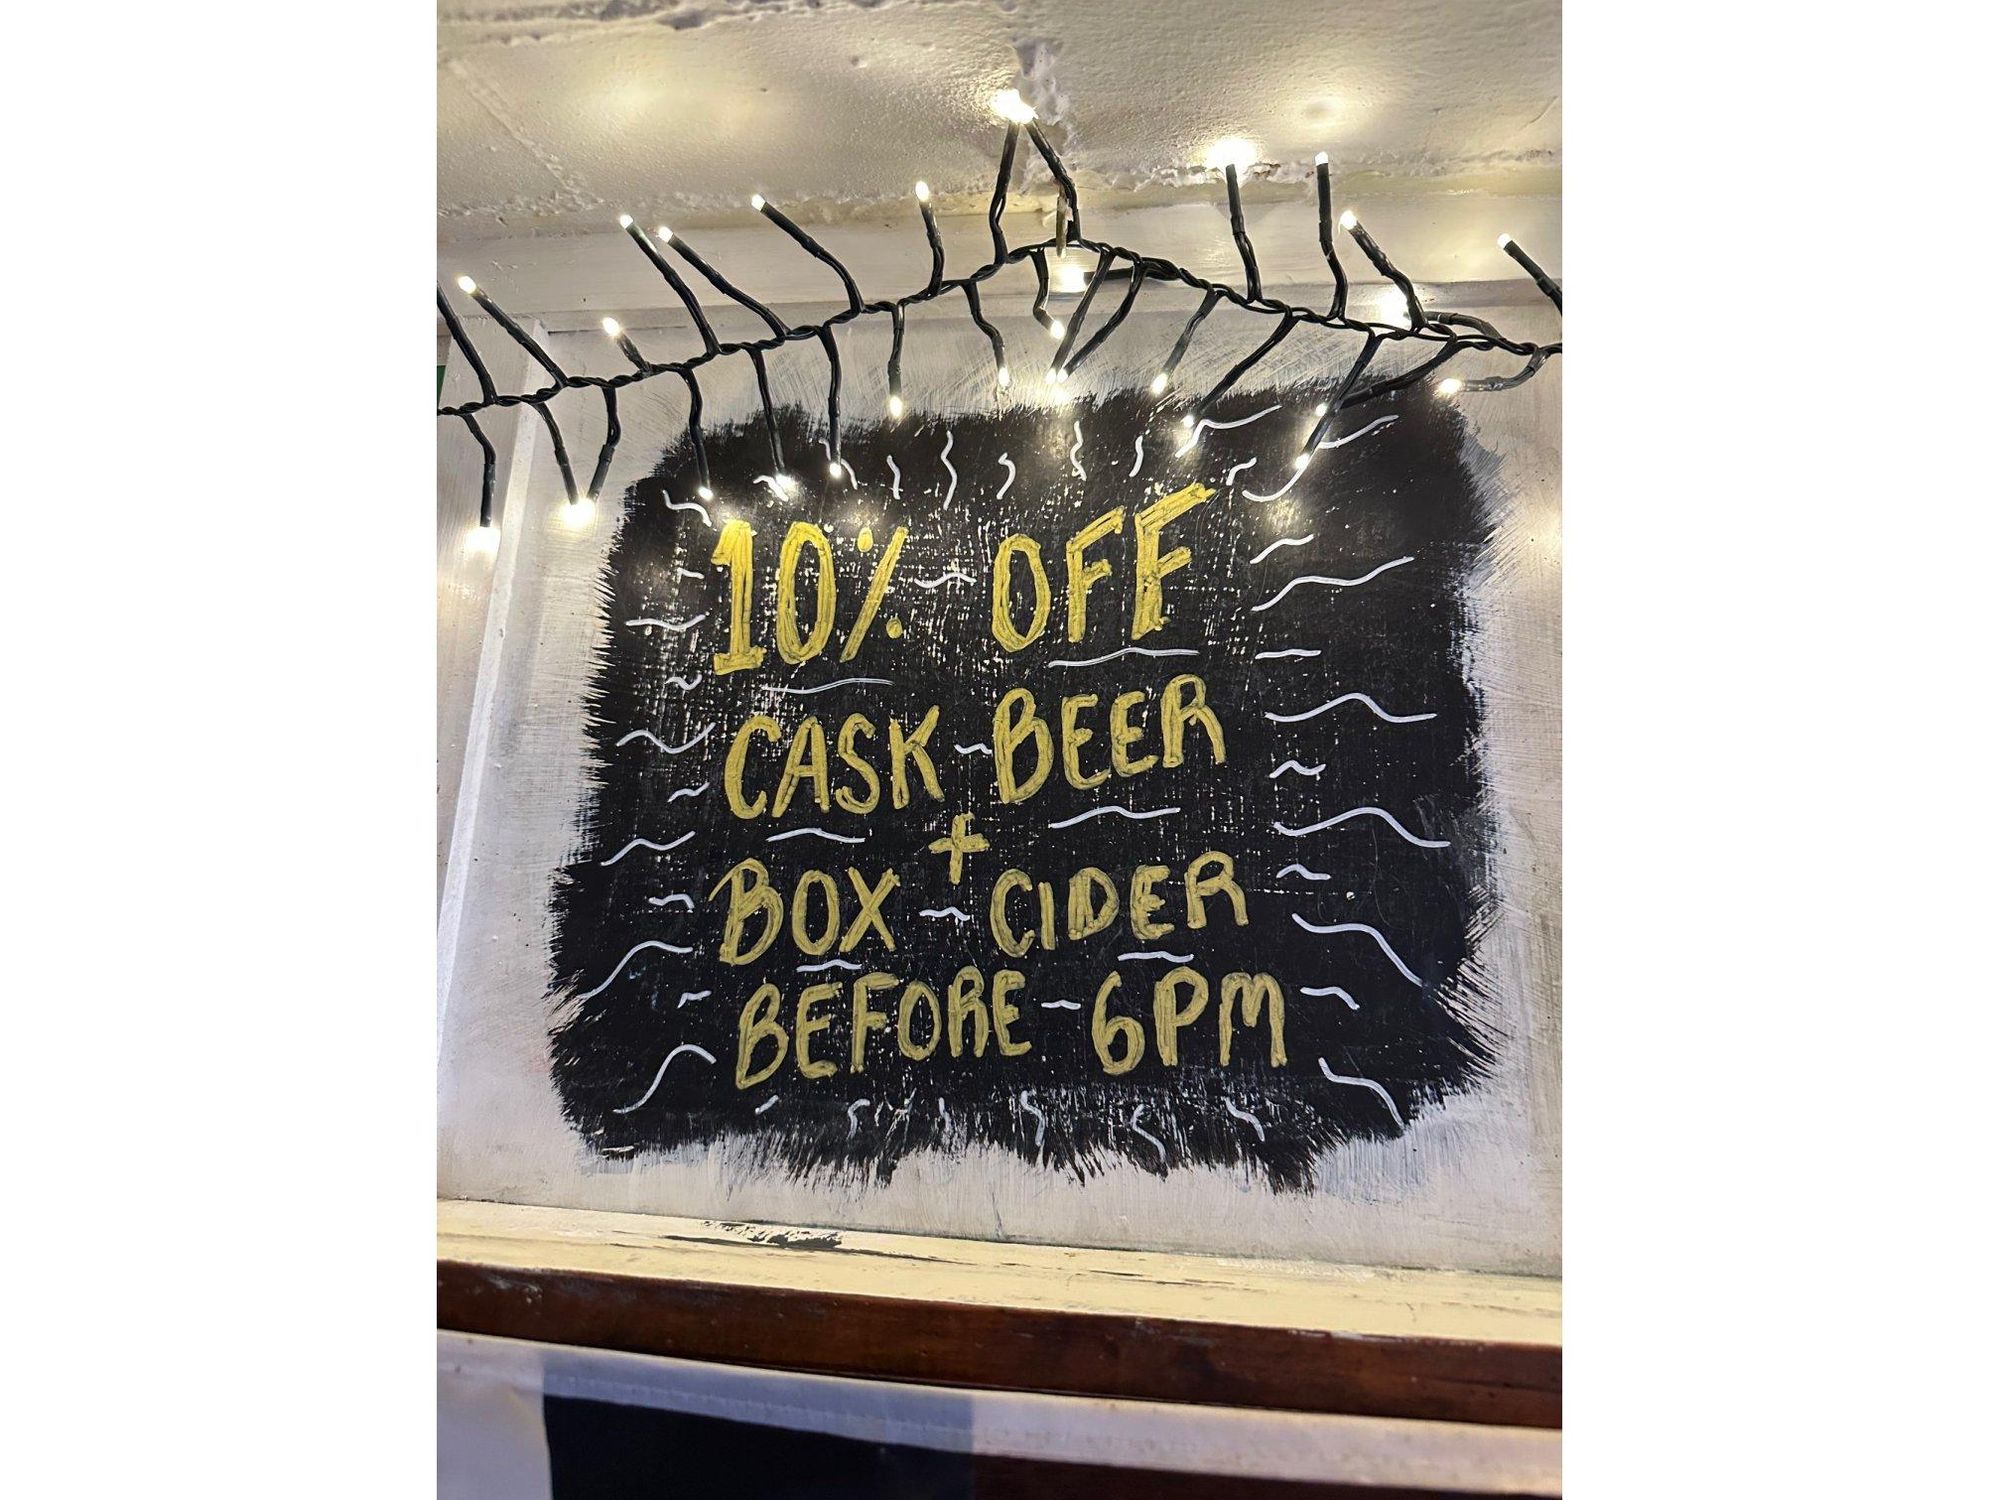 10% OFF
CASK BEER
+
BOX CIDER
BEFORE 6PM